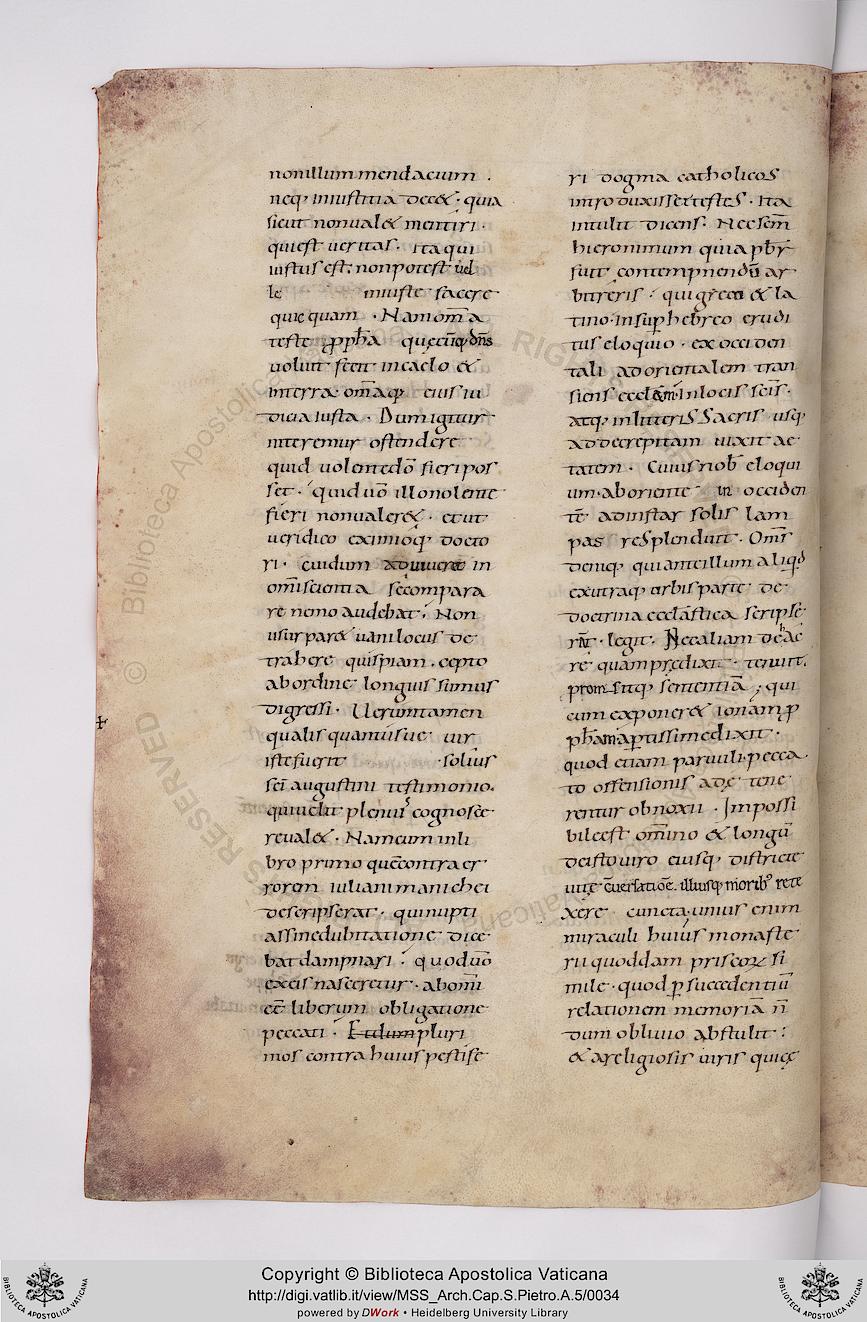 non illum mendacium .
neq; iniustitia dec&· quia
sicut non ual& mentiri ·
qui est ueritas · ita qui
iustus est; non potest uel
le iniuste facere
quiequam · Nam om̄a
teste ꝓph̄a quecūq; dn̄s
uoluit fecit in caelo &
in terra om̄aq; eius iu
dicia iusta · Dum igitur
niteremur ostendere
quid uolente dō fieri pos
set · quid uō illo nolente
fieri non ualer& · et ut
ueridico eximioq; docto
ri · cuidum aduiueret in
om̄i scientia se compara
re nemo audebat; Non
usurpar& uanilocus de
trahere quispiam . cepto
ab ordine longuis simus
digressi · Uerumtamen
qualis quantusue uir
iste fuerit · solius
sc̄i augustini testimonio.
qui uelit plenius cognosce
re ual& · Nam cum in li
bro primo quē contra er
rorem iuliani manichei
descripserat · qui nupti
as sine dubitatione dice
bat dampnari ; quod uō
ex eis nasceretur · ab om̄i
eē liberum obligatione
peccati · Et dum pluri
mos contra huius pestife
ri dogma catholicos
introduxisset testes · Ita
intulit dicens · Nec sc̄m
hieronimum quia pbr̄
fuit contempnendū ar
bitreris ; qui greco & la
tino insup̄ hebreo erudi
tus eloquio · ex occiden
tali ad orientalem tran
siens eccl̄am in locis sc̄is·
atq; in litteris Sacris usq;
ad decrepitam uixit ae
tatem · Cuius nob̄ eloqui
um ab oriente in occiden
tē ad instar solis lam
pas reSplenduit · Om̄s
deniq; qui ante illum aliqd
ex utraq; orbis parte de
doctrina eccl̄astica scripse
rn̄t · legit · Nec aliam de hac
re quam predixit · tenuit.
promsitq; sententiā ; qui
cum exponer& ionam ꝓ
ph̄am aptissime dixit ·
quod etiam paruuli · pecca
to offensionis ade tene
rentur obnoxii · Impossi
bile est om̄ino & longū
de isto uiro eiusq; districte
uite cūersatiōe · illiusq; morib; rete
xere cuncta · unius enim
miraculi huius monaste
rii quoddam priscorꝝ si
mile · quod ꝑ succedentiū
relationem memoriā n̄
dum obliuio abstulit ;
& a religiosis uiris quięe
Copyright © Biblioteca Apostolica Vaticana
http://digi.vatlib.it/view/MSS_Arch.Cap.S.Pietro.A.5/0034
powered by DWork • Heidelberg University Library